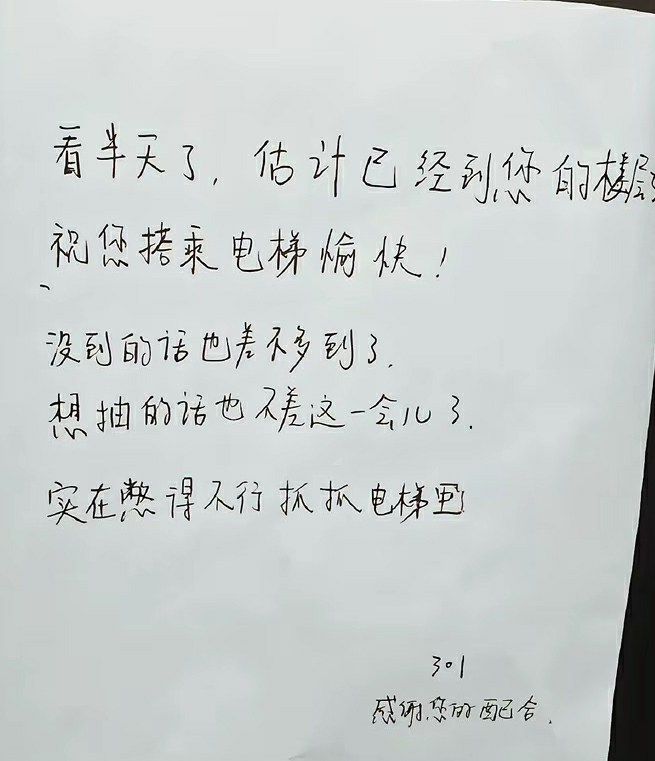 看半天了，估计已经到您的楼层了
祝您搭乘电梯愉快！
没到的话也差不多到了.
想抽的话也不差这一会儿了.
实在憋得不行抓抓电梯
301
感谢您的配合.